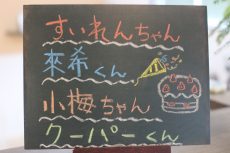 すいれんちゃん
來希くん
小梅ちゃん
クーパーくん